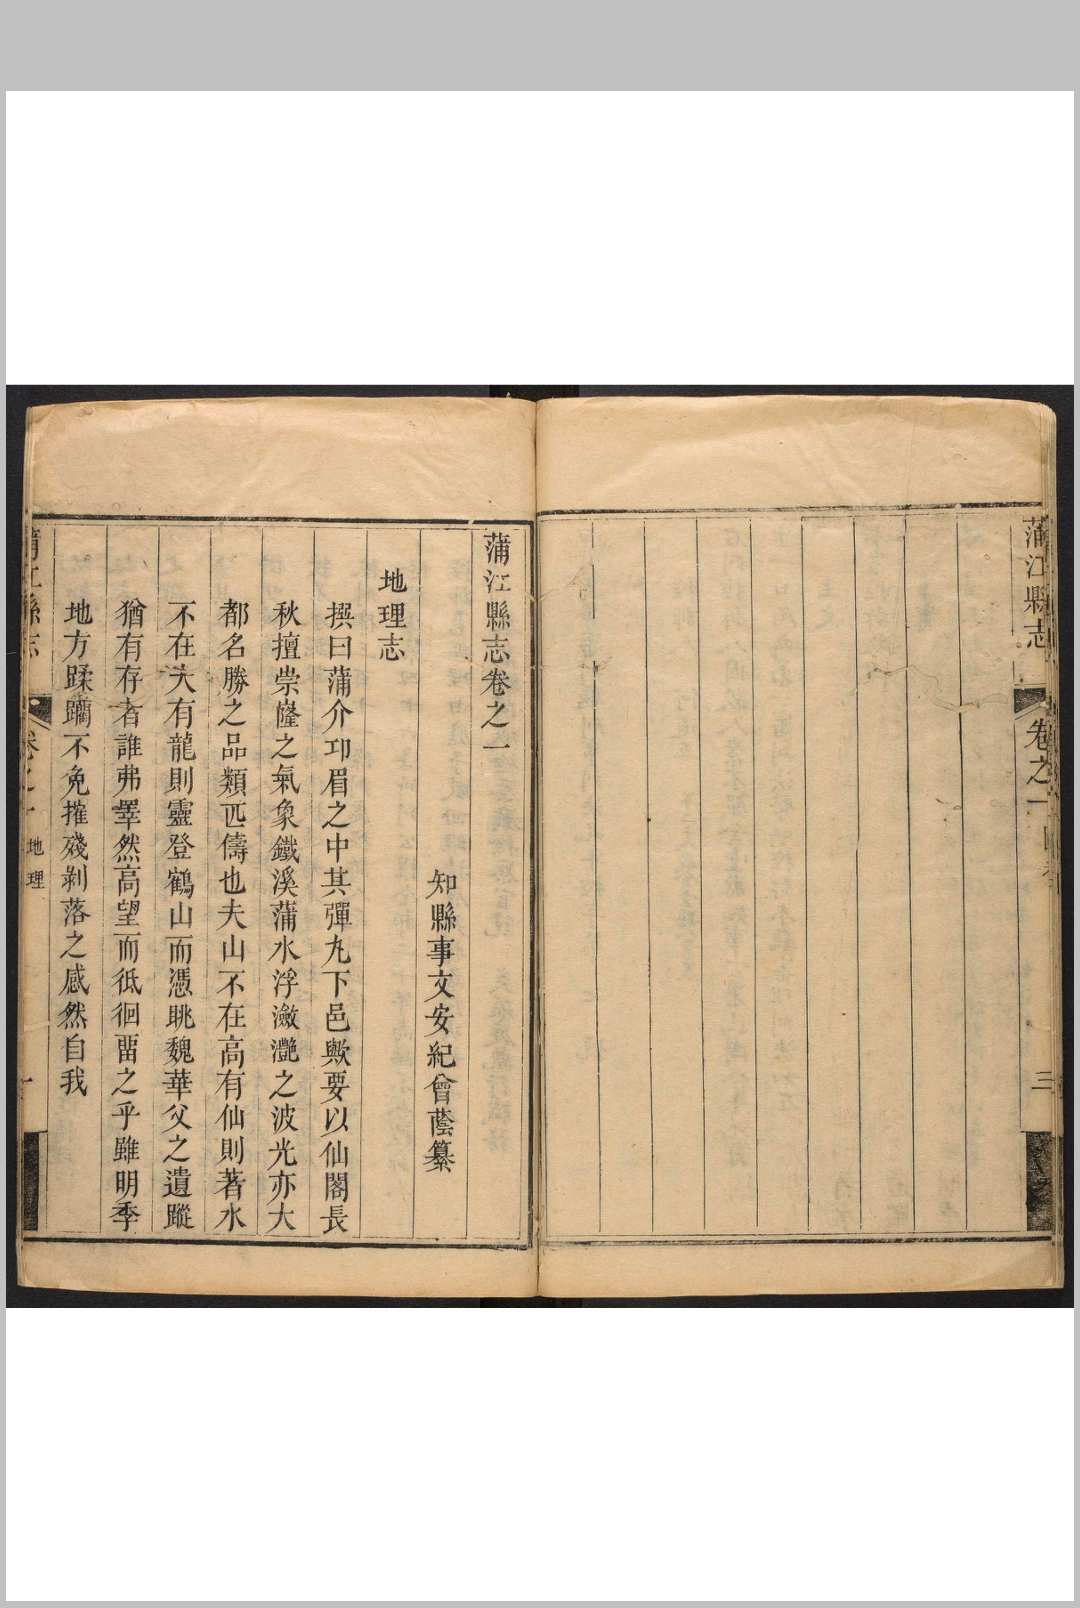 蒲江縣志
卷之一
三
蒲江縣志卷之一
知縣事文安紀曾蔭纂
地理志
撰曰蒲介卭眉之中其彈丸下邑歟要以仙閣長
秋擅崇隆之氣象鐵溪蒲水浮瀲灔之波光亦大
都名勝之品類匹儔也夫山不在高有仙則著水
不在大有龍則靈登鶴山而憑眺魏華父之遺蹤
猶有存者誰弗睪然高望而低徊畱之乎雖明季
地方蹂躪不免摧殘剝落之感然自我
蒲江縣志
卷之一
地理
一